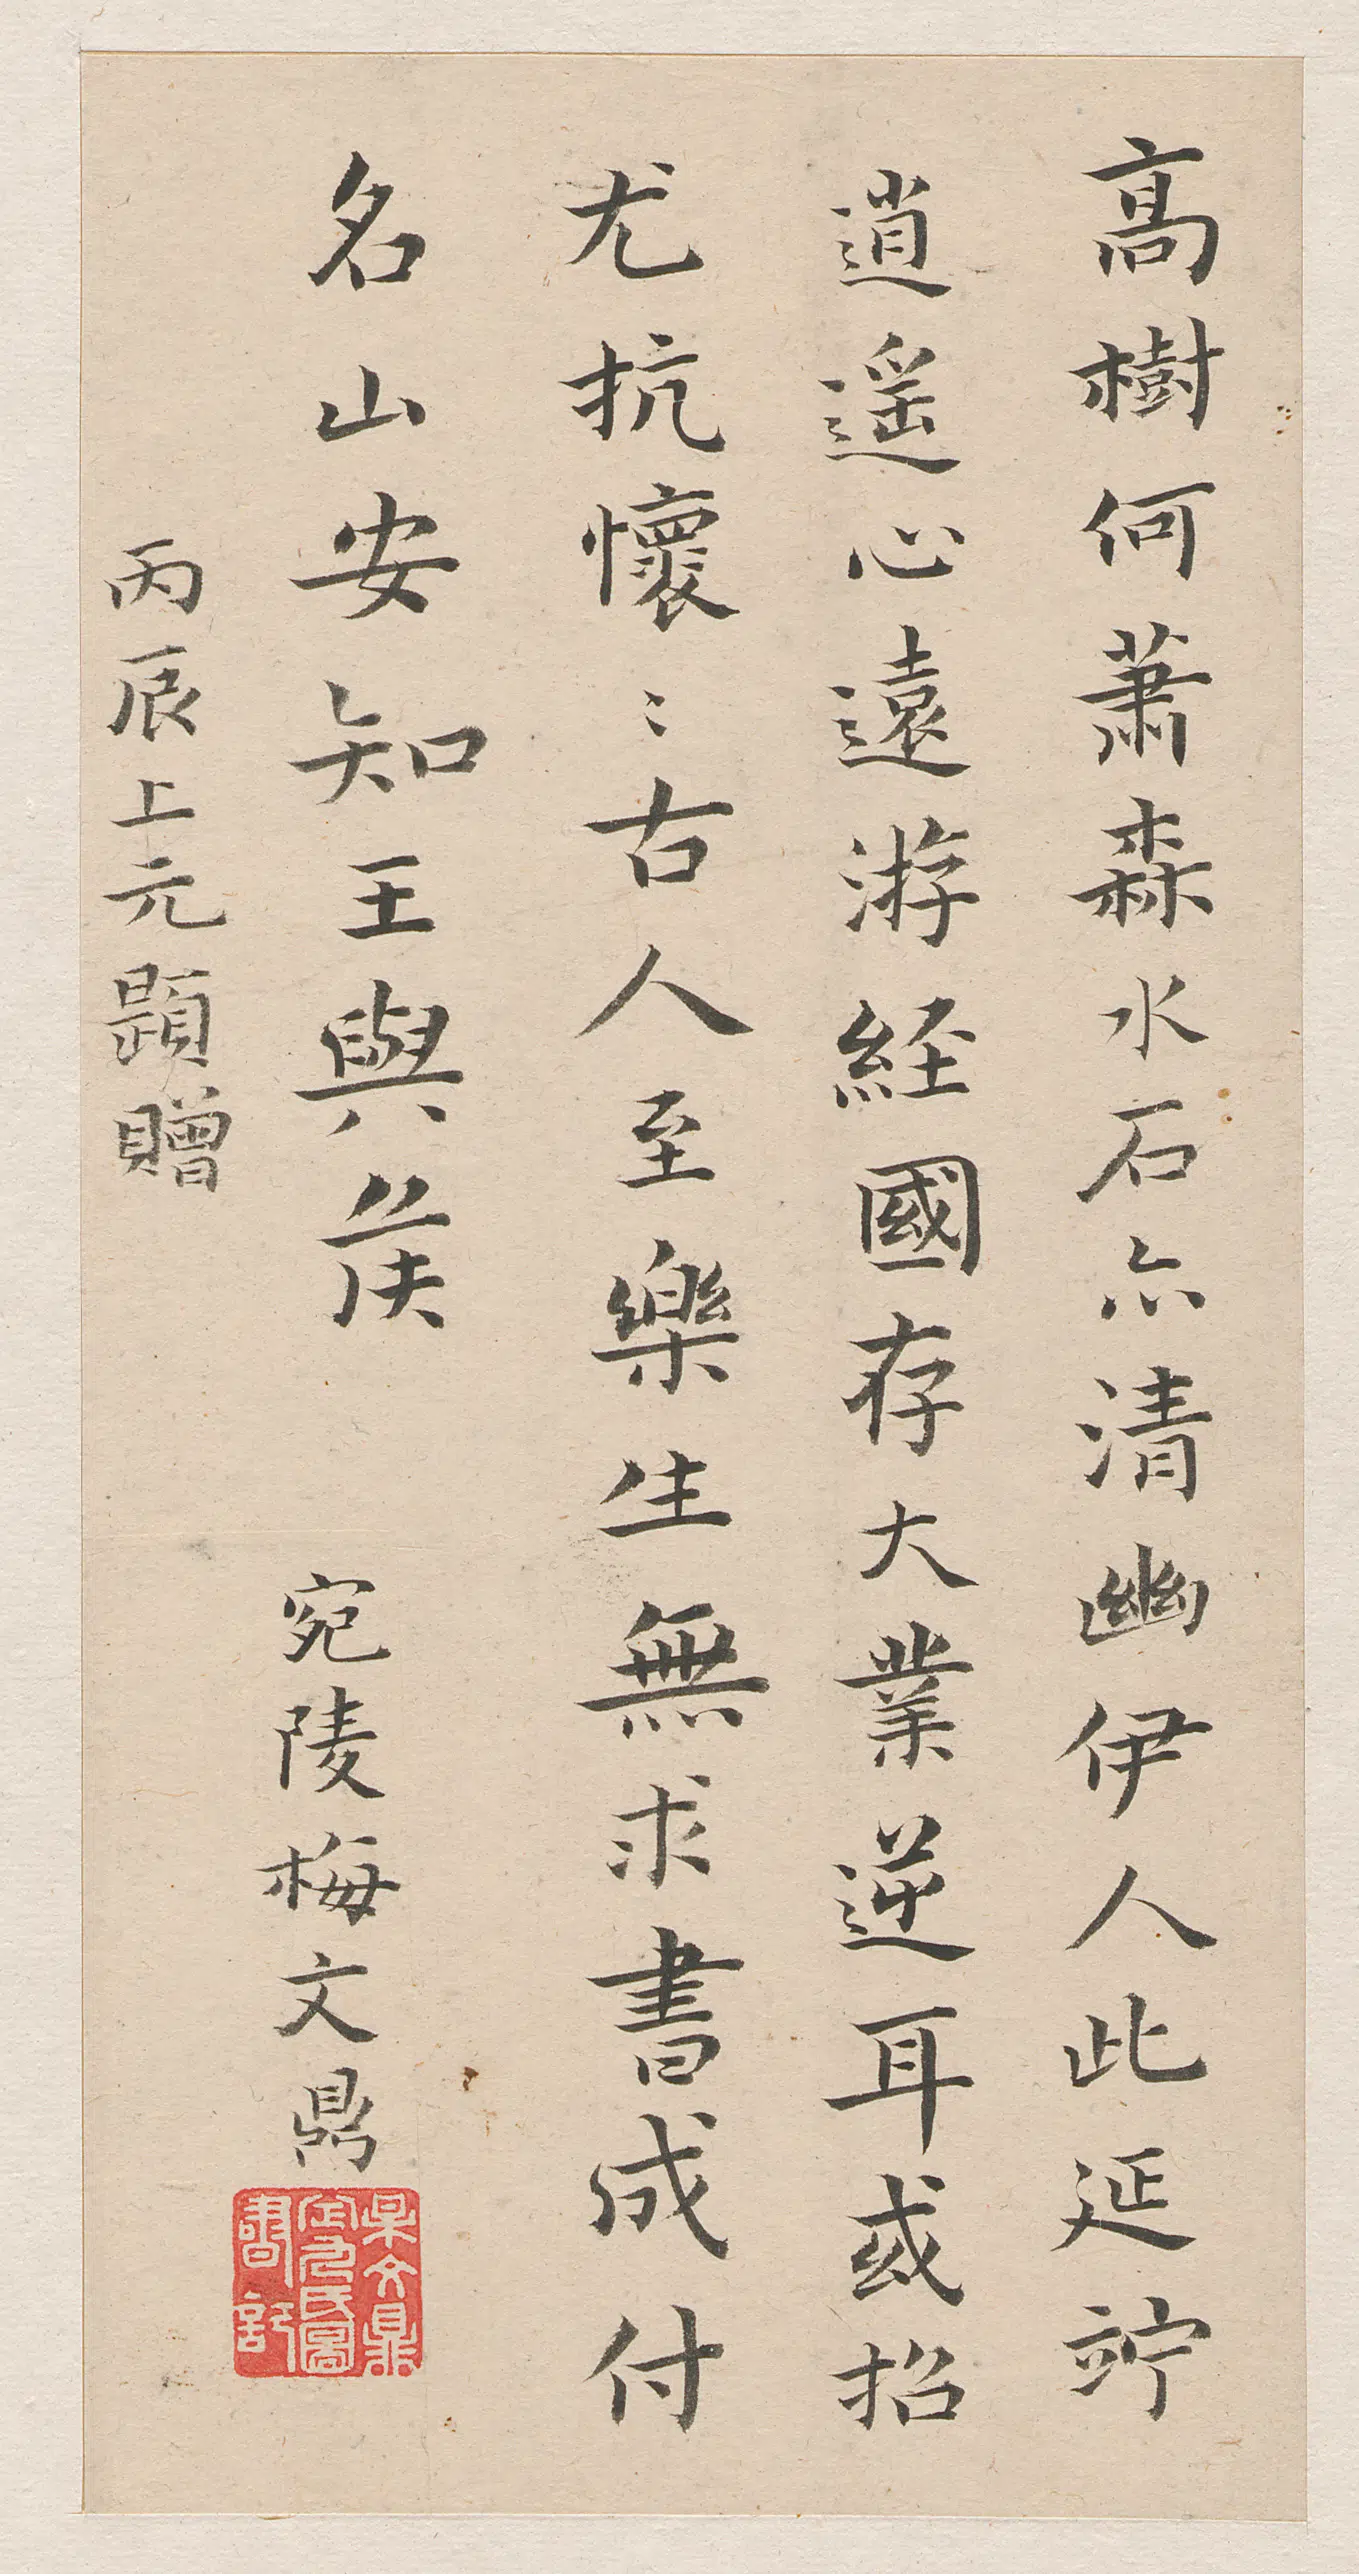 高樹何蕭森水石亦清幽伊人此延竚
逍遥心遠游經國存大業逆耳或招
尤抗懷〻古人至樂生無求書成付
名山安知王與侯
宛陵梅文鼎
丙辰上元題贈
梅文鼎
定九氏圖
書記